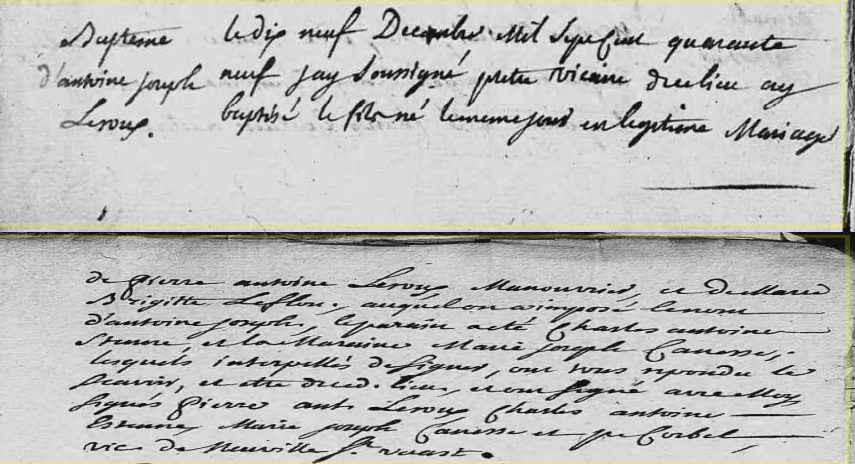 Bapteme
d'antoine joseph
Leroux.
le dix neuf Decembre Mil Sept Cent quarante
neuf jay Soussigné pretre vicaire de ce lieu ay
baptisé le fils né le meme jour en legitime Mariage
de Pierre antoine Leroux Manouvrier, et de Marie
Brigitte Leflon, auquel on a imposé le nom
d'antoine joseph, le parain a eté Charles antoine
et la Maraine Marie joseph Canesse,
lesquels interpellés de signer, ont tous repondu le
scavoir, et etre de ced. lieu, et ont signé avec Moy
signés Pierre ant. Leroux Charles antoine
Marie joseph Canesse et Corbel
vic de Neuville St. vaast.